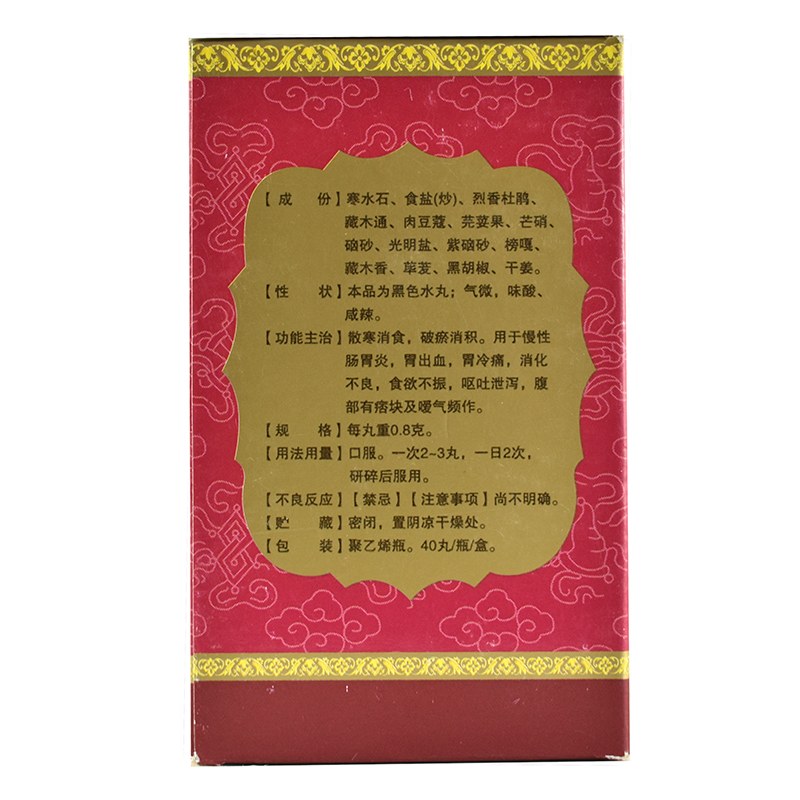 【成份】寒水石、食盐(炒)、烈香杜鹃、
藏木通、肉豆蔻、芫荽果、芒硝、
硇砂、光明盐、紫硇砂、榜嘎、
藏木香、荜茇、黑胡椒、干姜。
【性状】本品为黑色水丸；气微，味酸、
咸辣。
【功能主治】散寒消食，破瘀消积。用于慢性
肠胃炎，胃出血，胃冷痛，消化
不良，食欲不振，呕吐泄泻，腹
部有痞块及嗳气频作。
【规格】每丸重0.8克。
【用法用量】口服。一次2~3丸，一日2次，
研碎后服用。
【不良反应】【禁忌】【注意事项】尚不明确。
【贮藏】密闭，置阴凉干燥处。
【包装】聚乙烯瓶。40丸/瓶/盒。